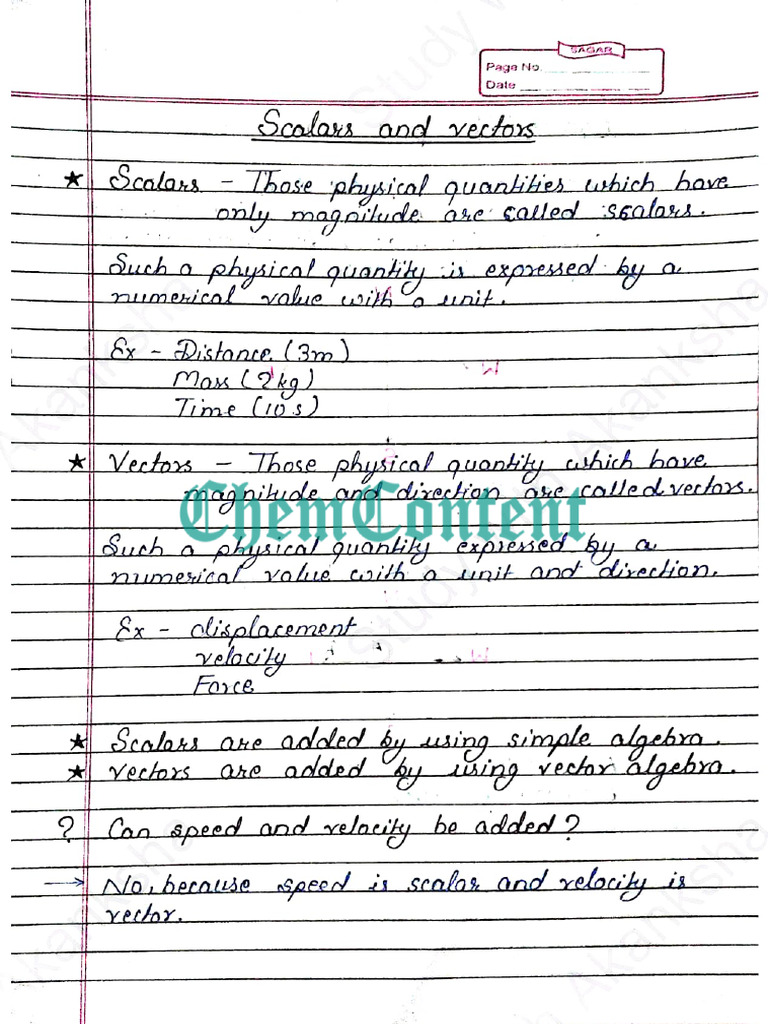 SAGAR
Page No.
Date
Scalars and vectors
★ Scalars - Those physical quantities which have
only magnitude are called scalars.
Such a physical quantity is expressed by a
numerical value with a unit.
Ex - Distance (3m)
Mass (2kg)
Time (10s)
★ Vectors - Those physical quantity which have
magnitude and direction are called vectors.
ChemContent
Such a physical quantity expressed by a
numerical value with a unit and direction.
Ex - displacement
velocity
Force
★ Scalars are added by using simple algebra.
★ vectors are added by using vector algebra.
? Can speed and velocity be added?
→ No, because speed is scalar and velocity is
vector.